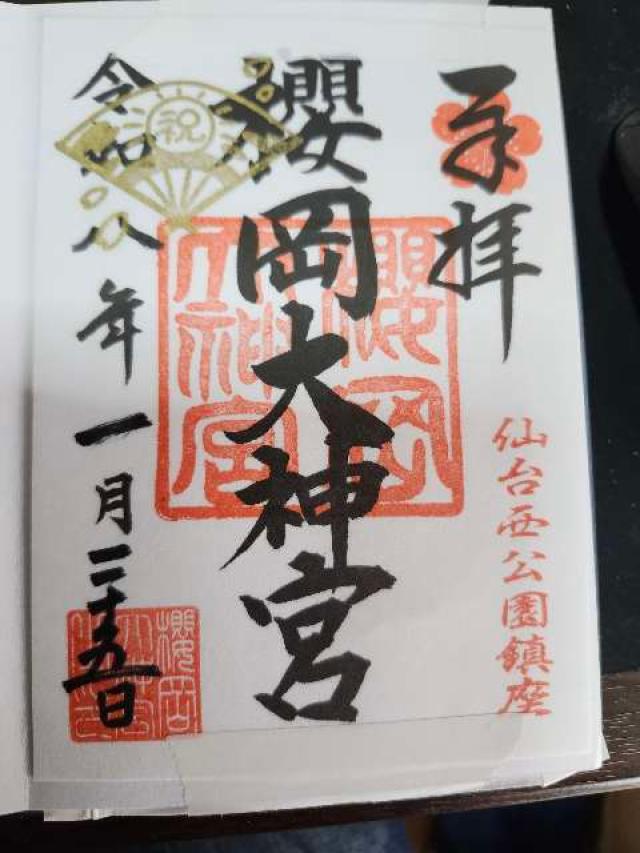 仙台西公園鎮座
奉拝
櫻岡大神宮
櫻岡
大神宮
祝
令和八年一月二十五日
櫻岡